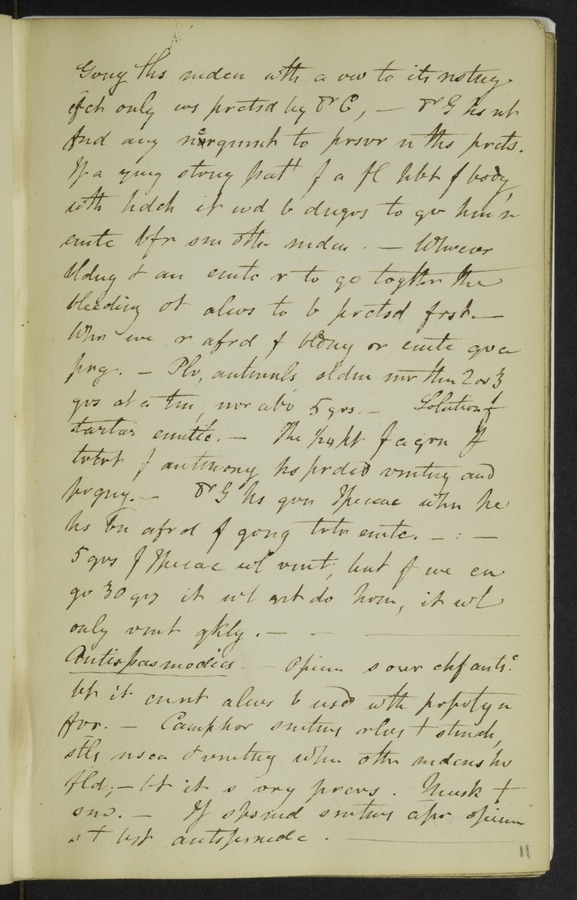 Gvng ths mdcn wth a vw to its nstng
efct only ws prctsd by Dr C, — Dr G hs nt
fnd any to prsvr n ths prcts.
If a yung strng patt f a fl hbt f body,
wth hdch it wd b dngrs to gv hm n
emtc bfr sm othr mdcn. — Whnevr
bldng & an emtc r to go togthr the
bleeding ot alws to b prctsd frst. —
Whn we r afrd f bldng or emtc gv a
prg. — Plv, antmnls, sldm mr thn 2 or 3
grs at a tm, nor abv 5 grs. — Solution f
tartar emetic. — The prt f a grn f
trtrt f antimony hs prdcd vmtng and
prgng. — Dr G hs gvn Ipecac whn he
hs bn afrd f gvng trtr emtc. — : —
5 grs f Ipecac wl vmt, but f we cn
gv 30 grs it wl nt do hrm, it wl
only vmt qkly. — —
Antispasmodics. — Opium s our chf ants.
bt it cnnt alws b usd wth prprty n
fvr. — Camphor smtms rlvs t stmch,
stls nsea & vmtng whn othr mdcns hv
fld; — bt it s vry prcrs. Musk t
sm. — If spsmd smtms aftr opium
s t bst antspsmdc.
11